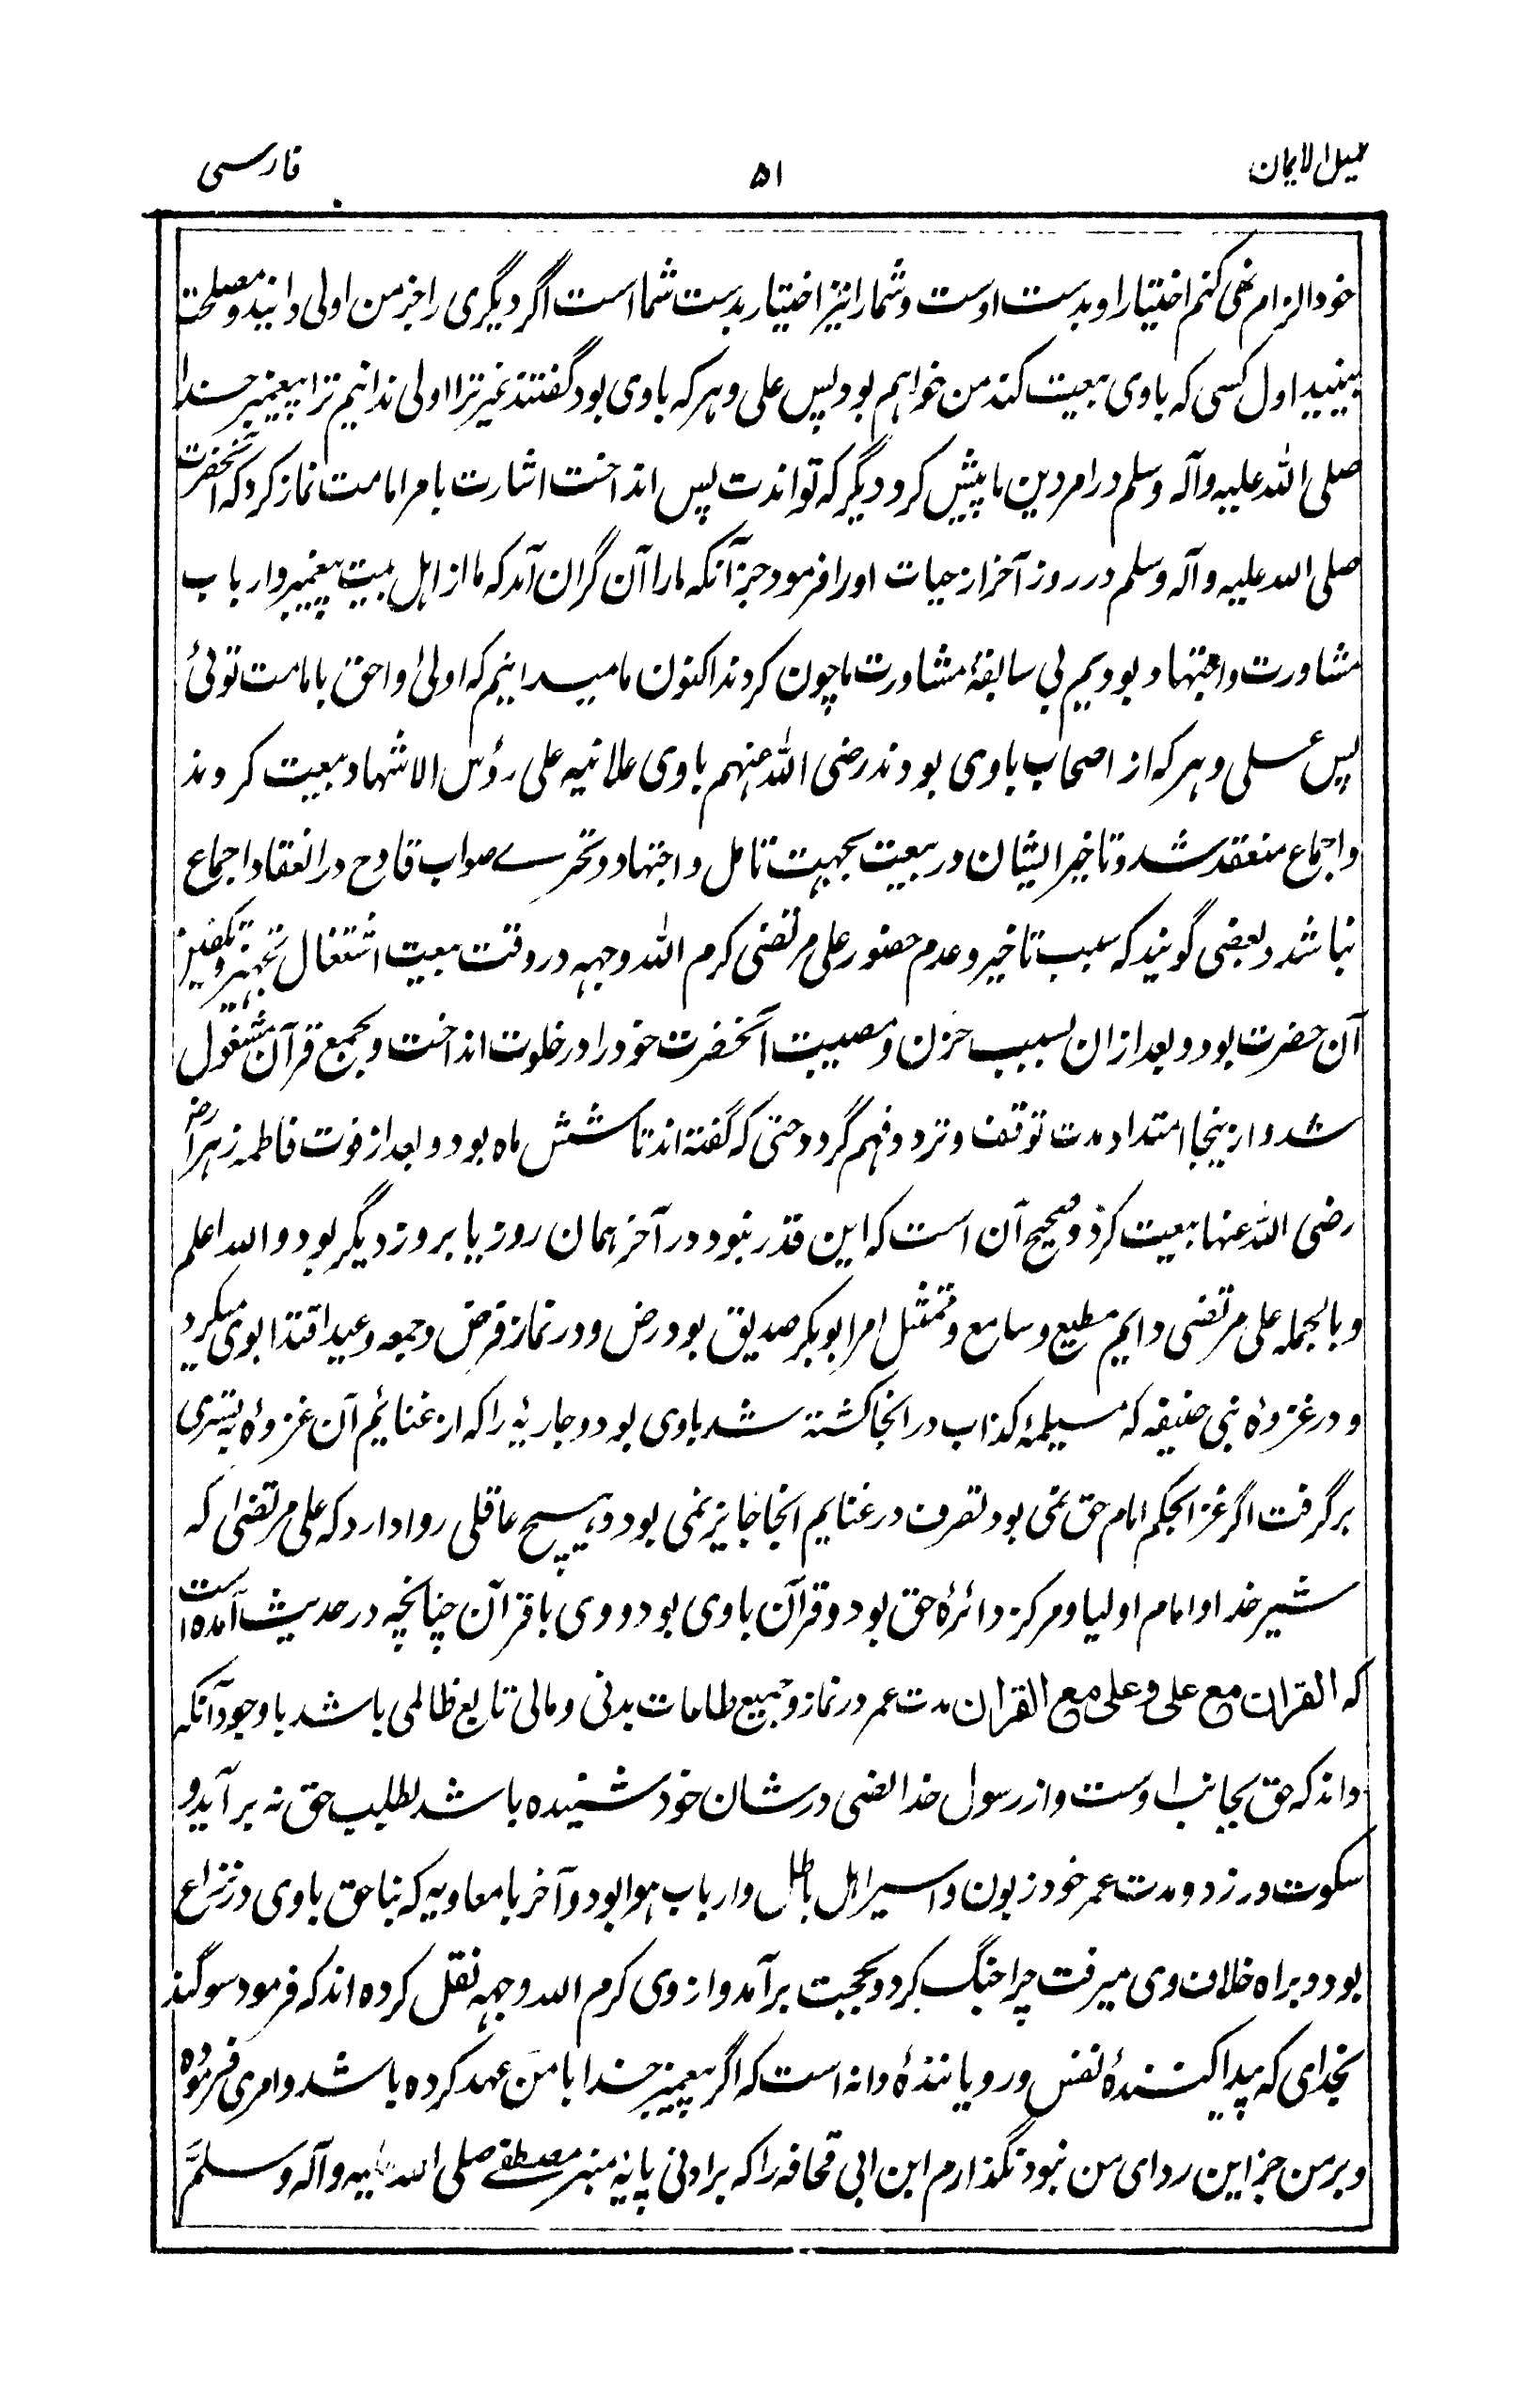 تکمیل الایمان ۵۱ فارسی
خود الزام نمی کنم اختیار او بدست اوست و شما را نیز اختیار بدست شما است اگر دیگری را بجز من اولی دانید و مصلحت
بینید اول کسی که باوی بیعت کند من خواهم بود پس علی و هر که باوی بود گفتند غیر ترا اولی ندانیم ترا پیغمبر خدا
صلی الله علیه وآله وسلم در امر دین ما پیش کرد دیگر که تواندت پس انداخت اشارت بامر امامت نماز کرد که آنحضرت
صلی الله علیه وآله وسلم در روز آخر از حیات او را فرمود جز آنکه مارا آن گران آمد که ما از اهل بیت پیغمبر و ارباب
مشاورت و اجتهاد بودیم بی سابقهٔ مشاورت ما چون کردند اکنون ما میدانیم که اولیٰ و احق بامامت توئی
پس علی و هر که از اصحاب باوی بودند رضی الله عنهم باوی علانیه علی رؤس الاشهاد بیعت کردند
و اجماع منعقد شد و تاخیر ایشان در بیعت بجهت تامل و اجتهاد و تحرے صواب قادح در انعقاد اجماع
نباشد و بعضی گویند که سبب تاخیر و عدم حضور علی مرتضی کرم الله وجهه در وقت بیعت اشتغال تجهیز و تکفین
آن حضرت بود و بعد ازان بسبب حزن و مصیبت آنحضرت خود را در خلوت انداخت و بجمع قرآن مشغول
شد و ازینجا امتداد مدت توقف و تردد فهم گردد حتی که گفته اند تا شش ماه بود و بعد از فوت فاطمه زهرا رض
رضی الله عنها بیعت کرد و صحیح آن است که این قدر نبود در آخر همان روز یا بروز دیگر بود و الله اعلم
و بالجمله علی مرتضی دایم مطیع و سامع و ممتثل امر ابوبکر صدیق بود رض و در نماز فرض و جمعه و عید اقتدا بوی میکرد
و در غزوهٔ بنی حنیفه که مسیلمهٔ کذاب در انجا کشته شد باوی بود و جاریهٔ را که از غنایٔم آن غزوهٔ به تسری
برگرفت اگر غزا بحکم امام حق نمی بود تصرف در غنایم آنجا جایز نمی بود و هیچ عاقلی روا دارد که علی مرتضی که
شیر خدا و امام اولیا و مرکز دائرهٔ حق بود و قرآن باوی بود و وی با قرآن چنانچه در حدیث آمده است
که القران مع علی و علی مع القران مدت عمر در نماز و جمیع طاعات بدنی و مالی تابع ظالمی باشد باوجود آنکه
داند که حق بجانب اوست و از رسول خدا نصی در شان خود شنیده باشد بطلب حق نه برآید و
سکوت ورزد و مدت عمر خود زبون و اسیر اهل باطل و ارباب هوا بود و آخر با معاویه که بناحق باوی در نزاع
بود و براه خلاف وی میرفت چرا جنگ کرد و بحجت برآمد و از وی کرم الله وجهه نقل کرده اند که فرمود سوگند
بخدای که پیدا کنندهٔ نفس و رویانندهٔ دانه است که اگر پیغمبر خدا با من عهد کرده باشد و امری فرموده
و بر من جز این ردای من نبود نگذارم ابن ابی قحافه را که بر ادنی پایهٔ منبر مصطفے صلی الله علیه وآله وسلم